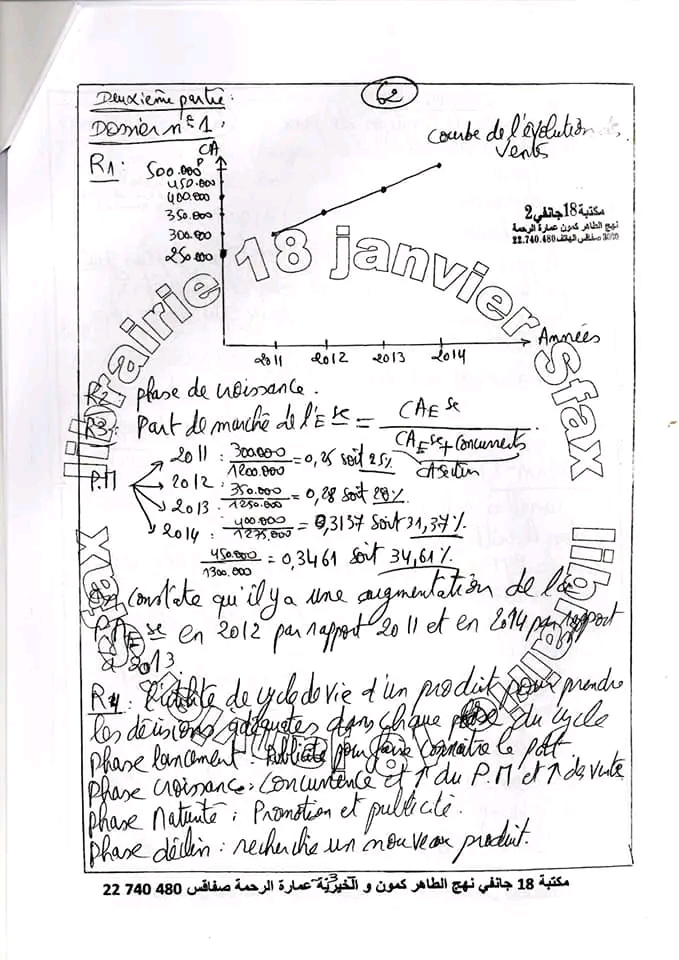 62
Deuxième partie:
Dossier n° 1.
R1:
CA
500.000
450.000
400.000
350.000
300.000
250.000
Courbe de l'évolution des
Vents
2011 2012 2013 2014
Années
مكتبة 18 جانفي 2
نهج الطاهر كمون عمارة الرحمة
3000 صفاقس الهاتف 22.740.480
librairie 18 janvier Sfax
R2: phase de croissance.
R3: Part de marché de l'Ese = CAEse / CAEse + Concurrents
CA secteur
P.M
2011 : 300.000 / 1200.000 = 0,25 soit 25%
2012 : 350.000 / 1250.000 = 0,28 soit 28%
2013 : 400.000 / 1275.000 = 0,3137 soit 31,37%
2014 : 450.000 / 1300.000 = 0,3461 soit 34,61%
On constate qu'il y a une augmentation de la
P.M Ese en 2012 par rapport 2011 et en 2014 par rapport
à 2013
R4: l'utilité de cycle de vie d'un produit pour prendre
les décisions adéquates dans chaque phase du cycle
phase lancement : Publicité pour faire connaitre le pdt
phase croissance : concurrence et ↑ du P.M et ↑ des vente
phase Maturité : Promotion et publicité.
phase déclin : recherche un nouveau produit.
-3-
مكتبة 18 جانفي نهج الطاهر كمون و الخيرية عمارة الرحمة صفاقس 480 740 22
librairie 18 janvier Sfax